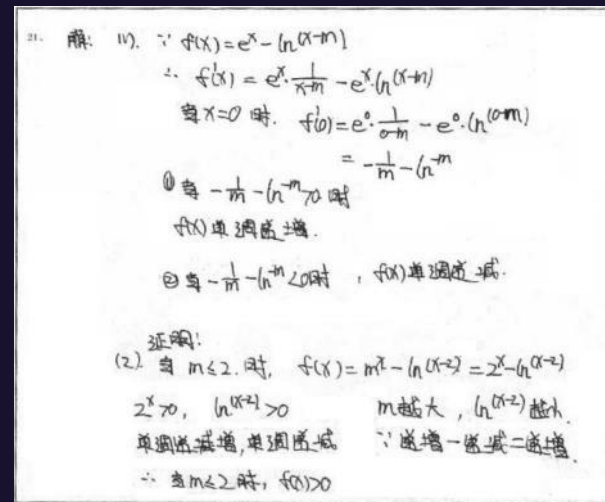 21. 解: (1). ∵ f(x)=e^x-ln^(x-m)
∴ f'(x)=e^x·1/(x-m)-e^x·ln^(x-m)
当x=0 时. f'(0)=e^0·1/(0-m)-e^0·ln^(0-m)
=-1/m-ln^-m
①当-1/m-ln^-m>0 时
f(x)单调递增.
②当-1/m-ln^-m<0时, f(x)单调递减.
证明:
(2). 当m≤2.时, f(x)=m^x-ln^(x-2)=2^x-ln^(x-2)
2^x>0, ln^(x-2)>0 m越大, ln^(x-2)越小.
单调递增,单调递减 ∵递增-递减=递增.
∴当m≤2时, f(x)>0